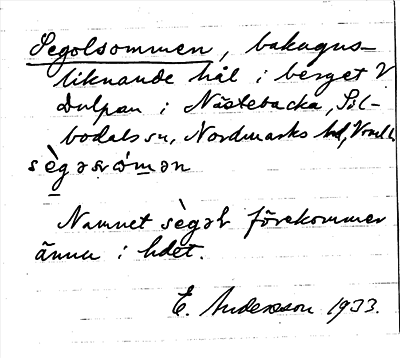 Segolsommen, bakugns-
liknande hål i berget V
Dulpan i Nästebacka, Sil-
bodals sn, Nordmarks hd, Vrml.
sègəsωmən
Namnet sègəɫ förekommer
ännu i hdet.
E. Andersson 1933.